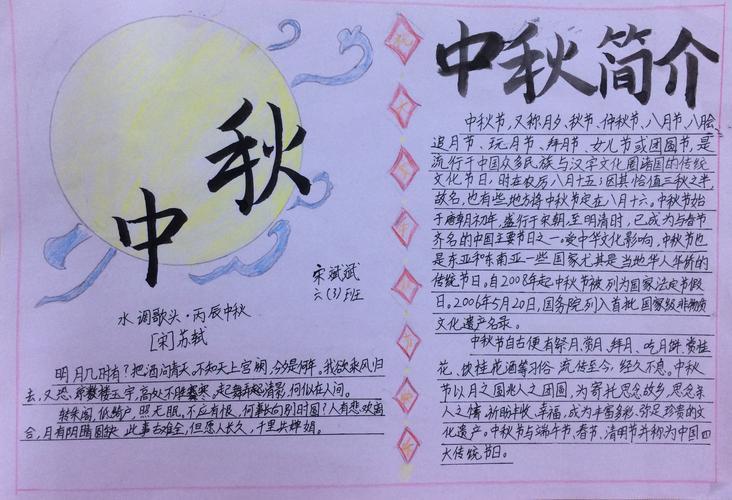 中秋
宋斌斌
六(3)班
水调歌头·丙辰中秋
[宋]苏轼
明月几时有?把酒问青天。不知天上宫阙,今夕是何年。我欲乘风归
去,又恐琼楼玉宇,高处不胜寒。起舞弄清影,何似在人间。
转朱阁,低绮户,照无眠。不应有恨,何事长向别时圆?人有悲欢离
合,月有阴晴圆缺,此事古难全。但愿人长久,千里共婵娟。
祝
大
家
中
秋
节
快
乐
中秋简介
中秋节,又称月夕、秋节、仲秋节、八月节、八月会、
追月节、玩月节、拜月节、女儿节或团圆节,是
流行于中国众多民族与汉字文化圈诸国的传统
文化节日,时在农历八月十五;因其恰值三秋之半,
故名,也有些地方将中秋节定在八月十六。中秋节始
于唐朝初年,盛行于宋朝,至明清时,已成为与春节
齐名的中国主要节日之一。受中华文化影响,中秋节也
是东亚和东南亚一些国家尤其是当地华人华侨的
传统节日。自2008年起中秋节被列为国家法定节假
日。2006年5月20日,国务院列入首批国家级非物质
文化遗产名录。
中秋节自古便有祭月、赏月、拜月、吃月饼、赏桂
花、饮桂花酒等习俗,流传至今,经久不息。中秋
节以月之圆兆人之团圆,为寄托思念故乡,思念亲
人之情,祈盼丰收、幸福,成为丰富多彩、弥足珍贵的文
化遗产。中秋节与端午节、春节、清明节并称为中国四
大传统节日。